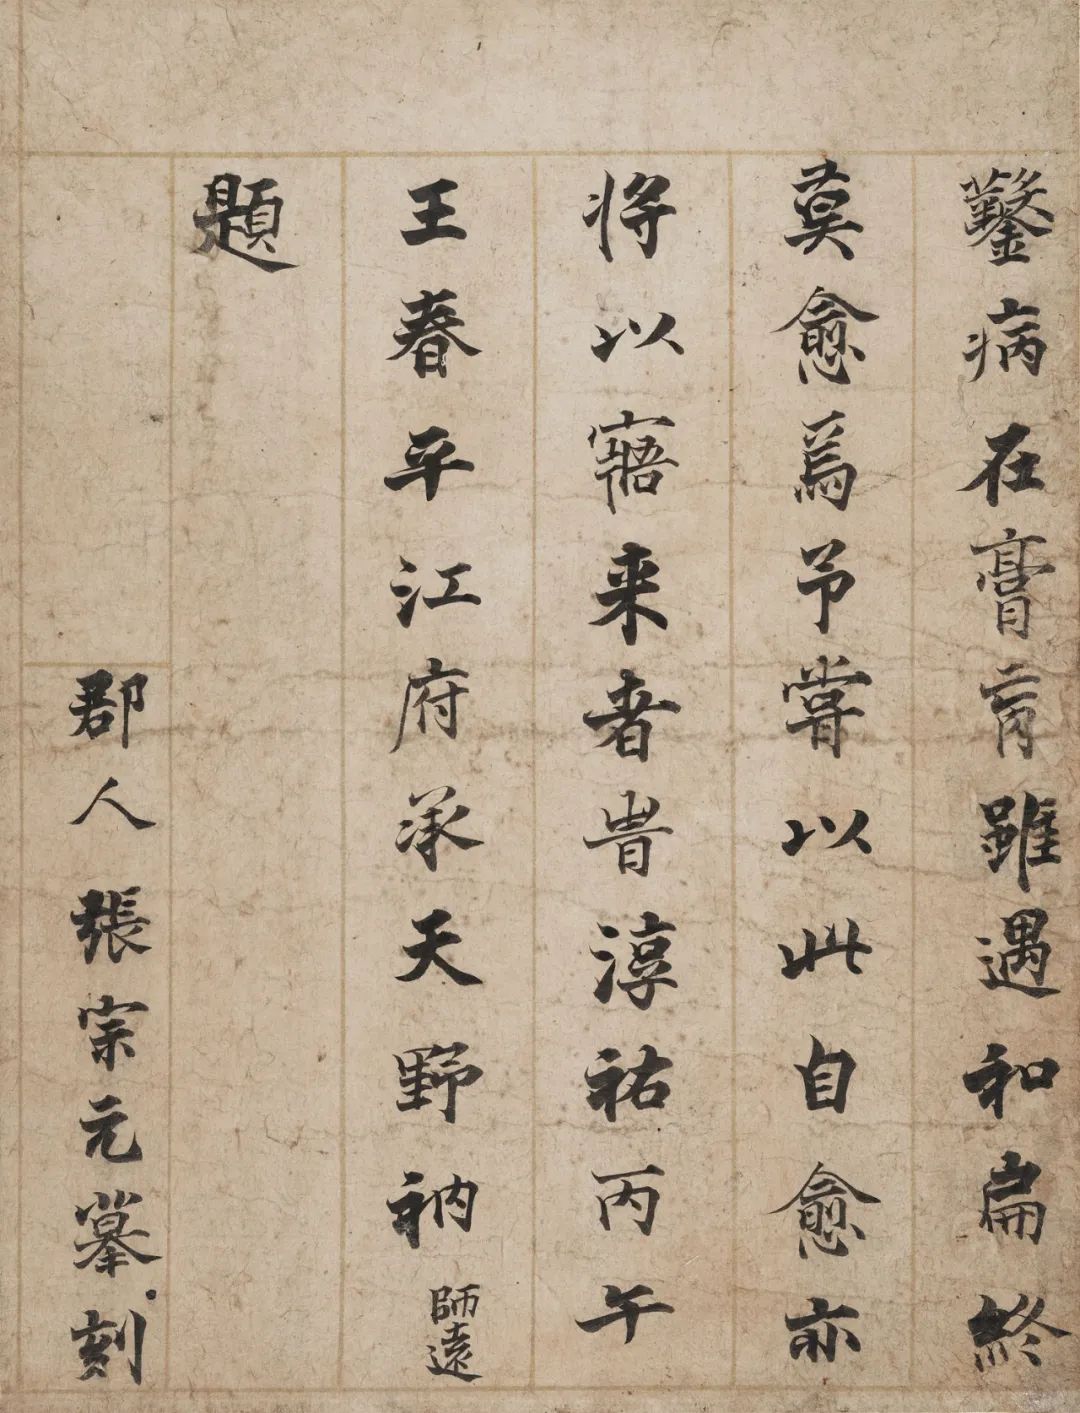 鑿病在膏肓雖遇和扁終
莫愈焉予嘗以此自愈亦
将以寤来者旹淳祐丙午
王春平江府承天野衲師遠
題
郡人張宗元摹刻